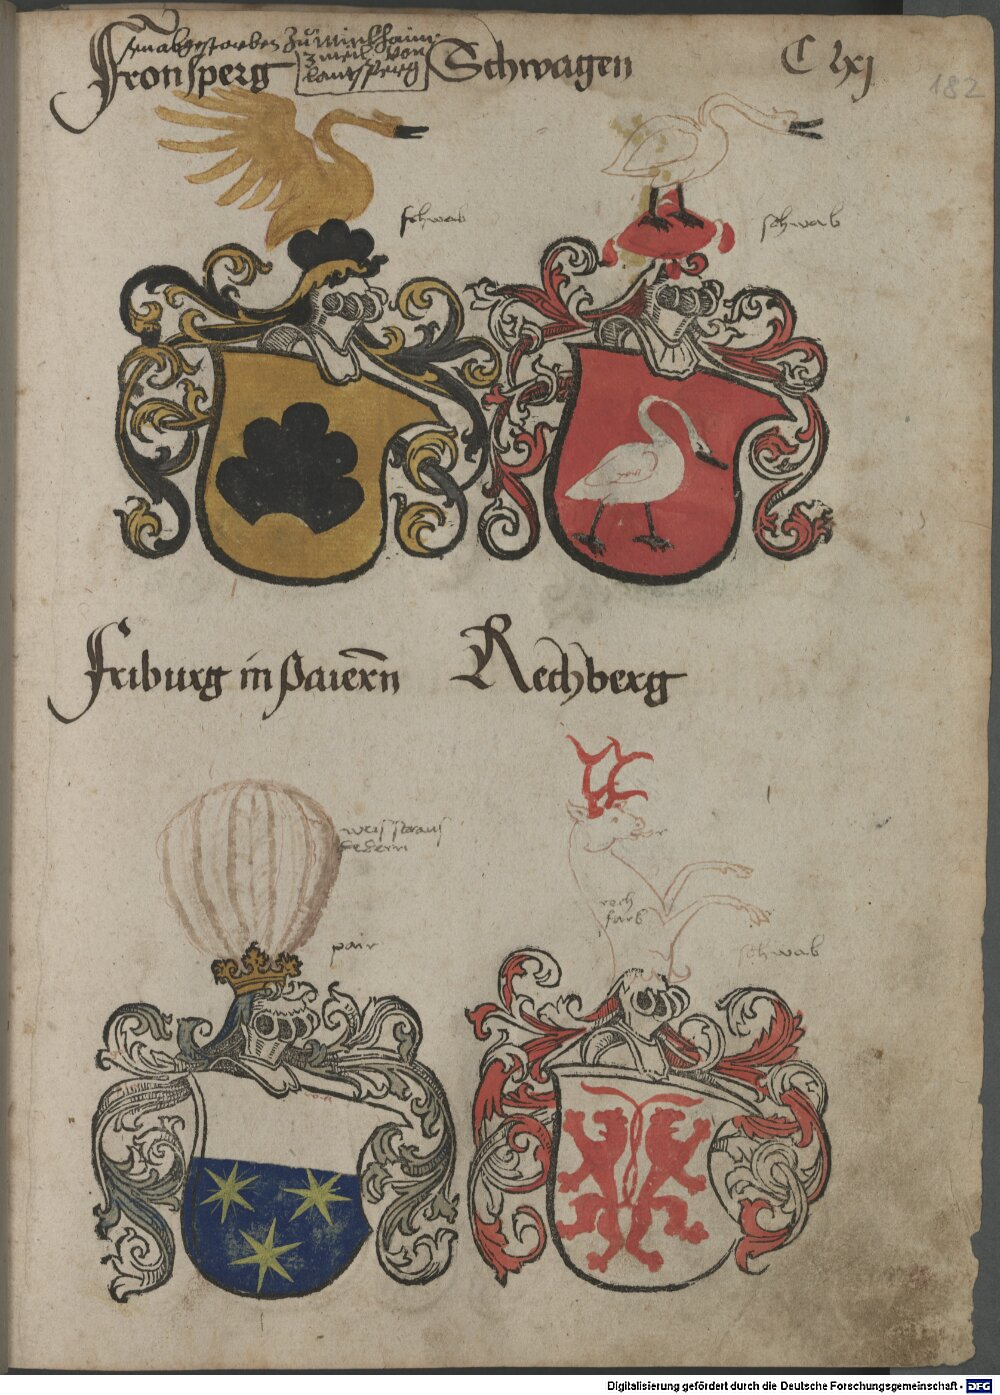 Fronsperg
Schwagen
C lxj
182
schwab
schwab
Friburg in Paiern
Rechberg
weis straus
federn
pair
rech
farb
schwab
Digitalisierung gefördert durch die Deutsche Forschungsgemeinschaft - DFG